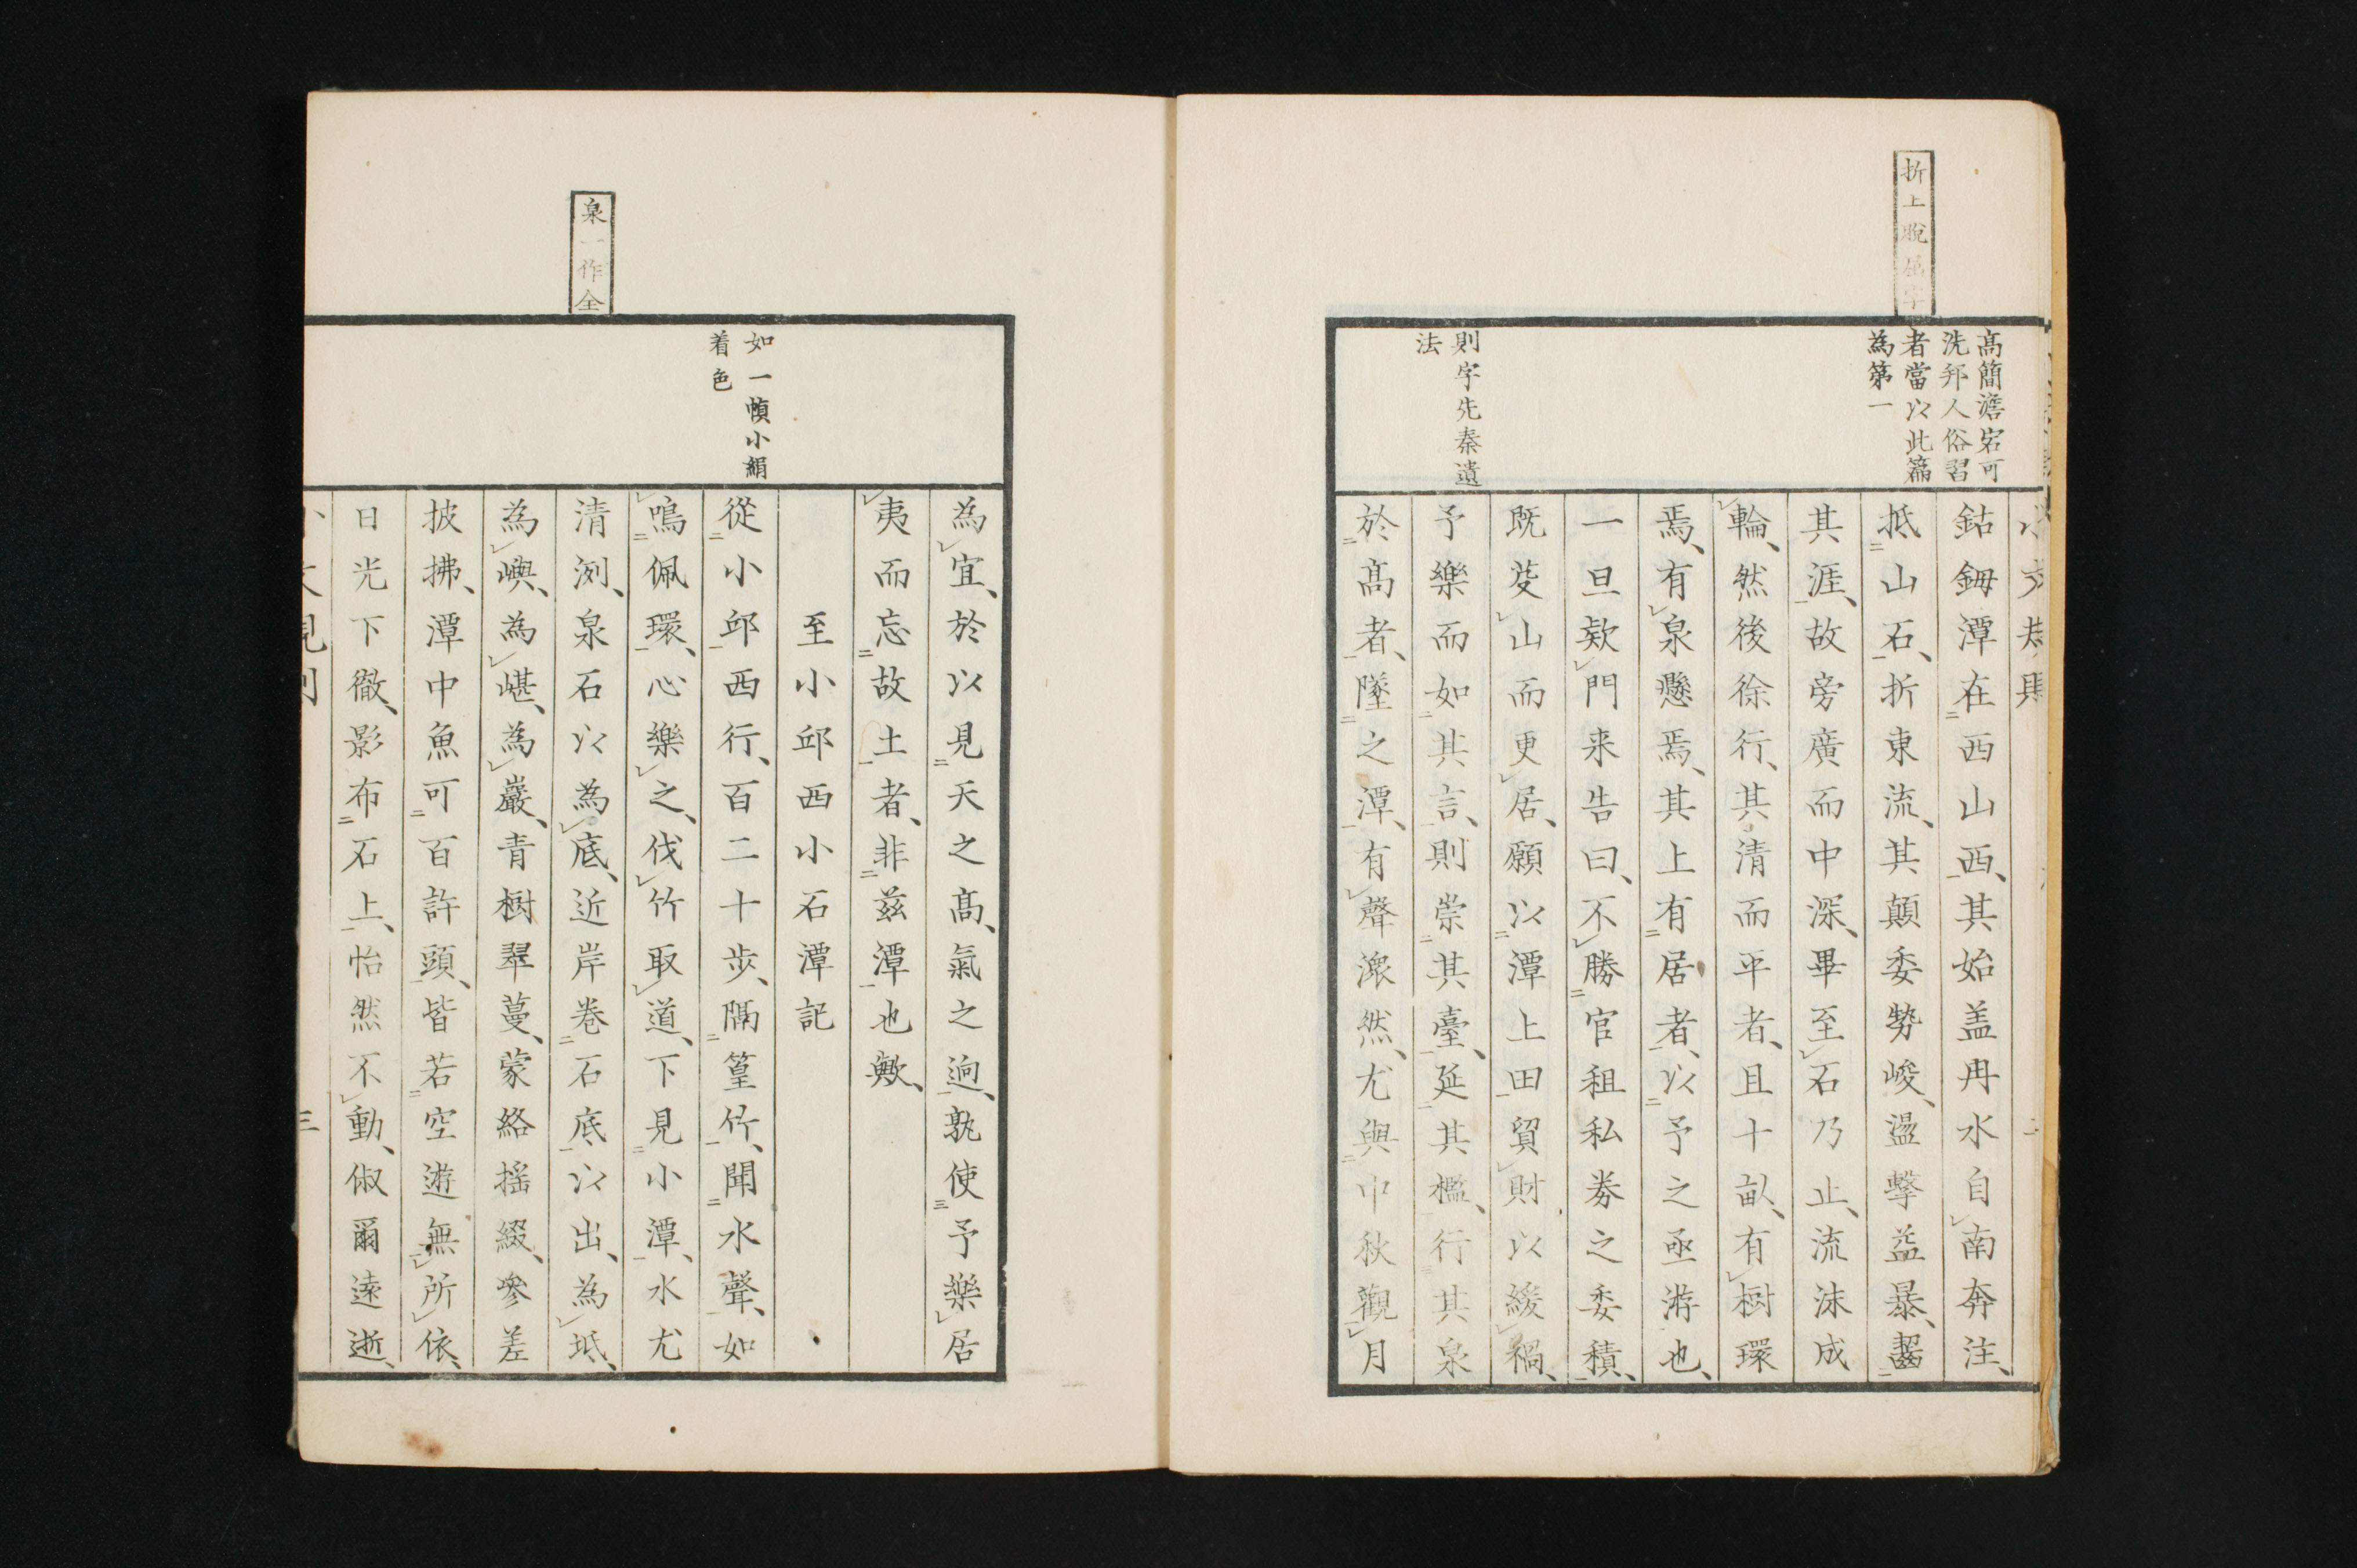 折上脫屈字
高簡澹宕可
洗邦人俗習
者當以此篇
為第一
則字先秦遺
法
鈷鉧潭在西山西、其始盖冉水自南奔注、
抵山石、折東流、其顛委勢峻、盪擊益暴、齧
其涯、故旁廣而中深、畢至石乃止、流沫成
輪、然後徐行、其清而平者、且十畝、有樹環
焉、有泉懸焉、其上有居者、以予之亟游也、
一旦款門来告曰、不勝官租私券之委積、
既芟山而更居、願以潭上田貿財以緩禍、
予樂而如其言、則崇其臺、延其檻、行其泉
於高者、墜之潭、有聲潀然、尤與中秋觀月
泉一作全
如一幀小絹
着色
為宜、於以見天之高、氣之逈、孰使予樂居
夷而忘故土者、非茲潭也歟、
至小邱西小石潭記
從小邱西行、百二十步、隔篁竹、聞水聲、如
鳴佩環、心樂之、伐竹取道、下見小潭、水尤
清洌、泉石以為底、近岸卷石底以出、為坻、
為嶼、為嵁、為巖、青樹翠蔓、蒙絡搖綴、參差
披拂、潭中魚可百許頭、皆若空遊無所依、
日光下徹、影布石上、怡然不動、俶爾遠逝、
三